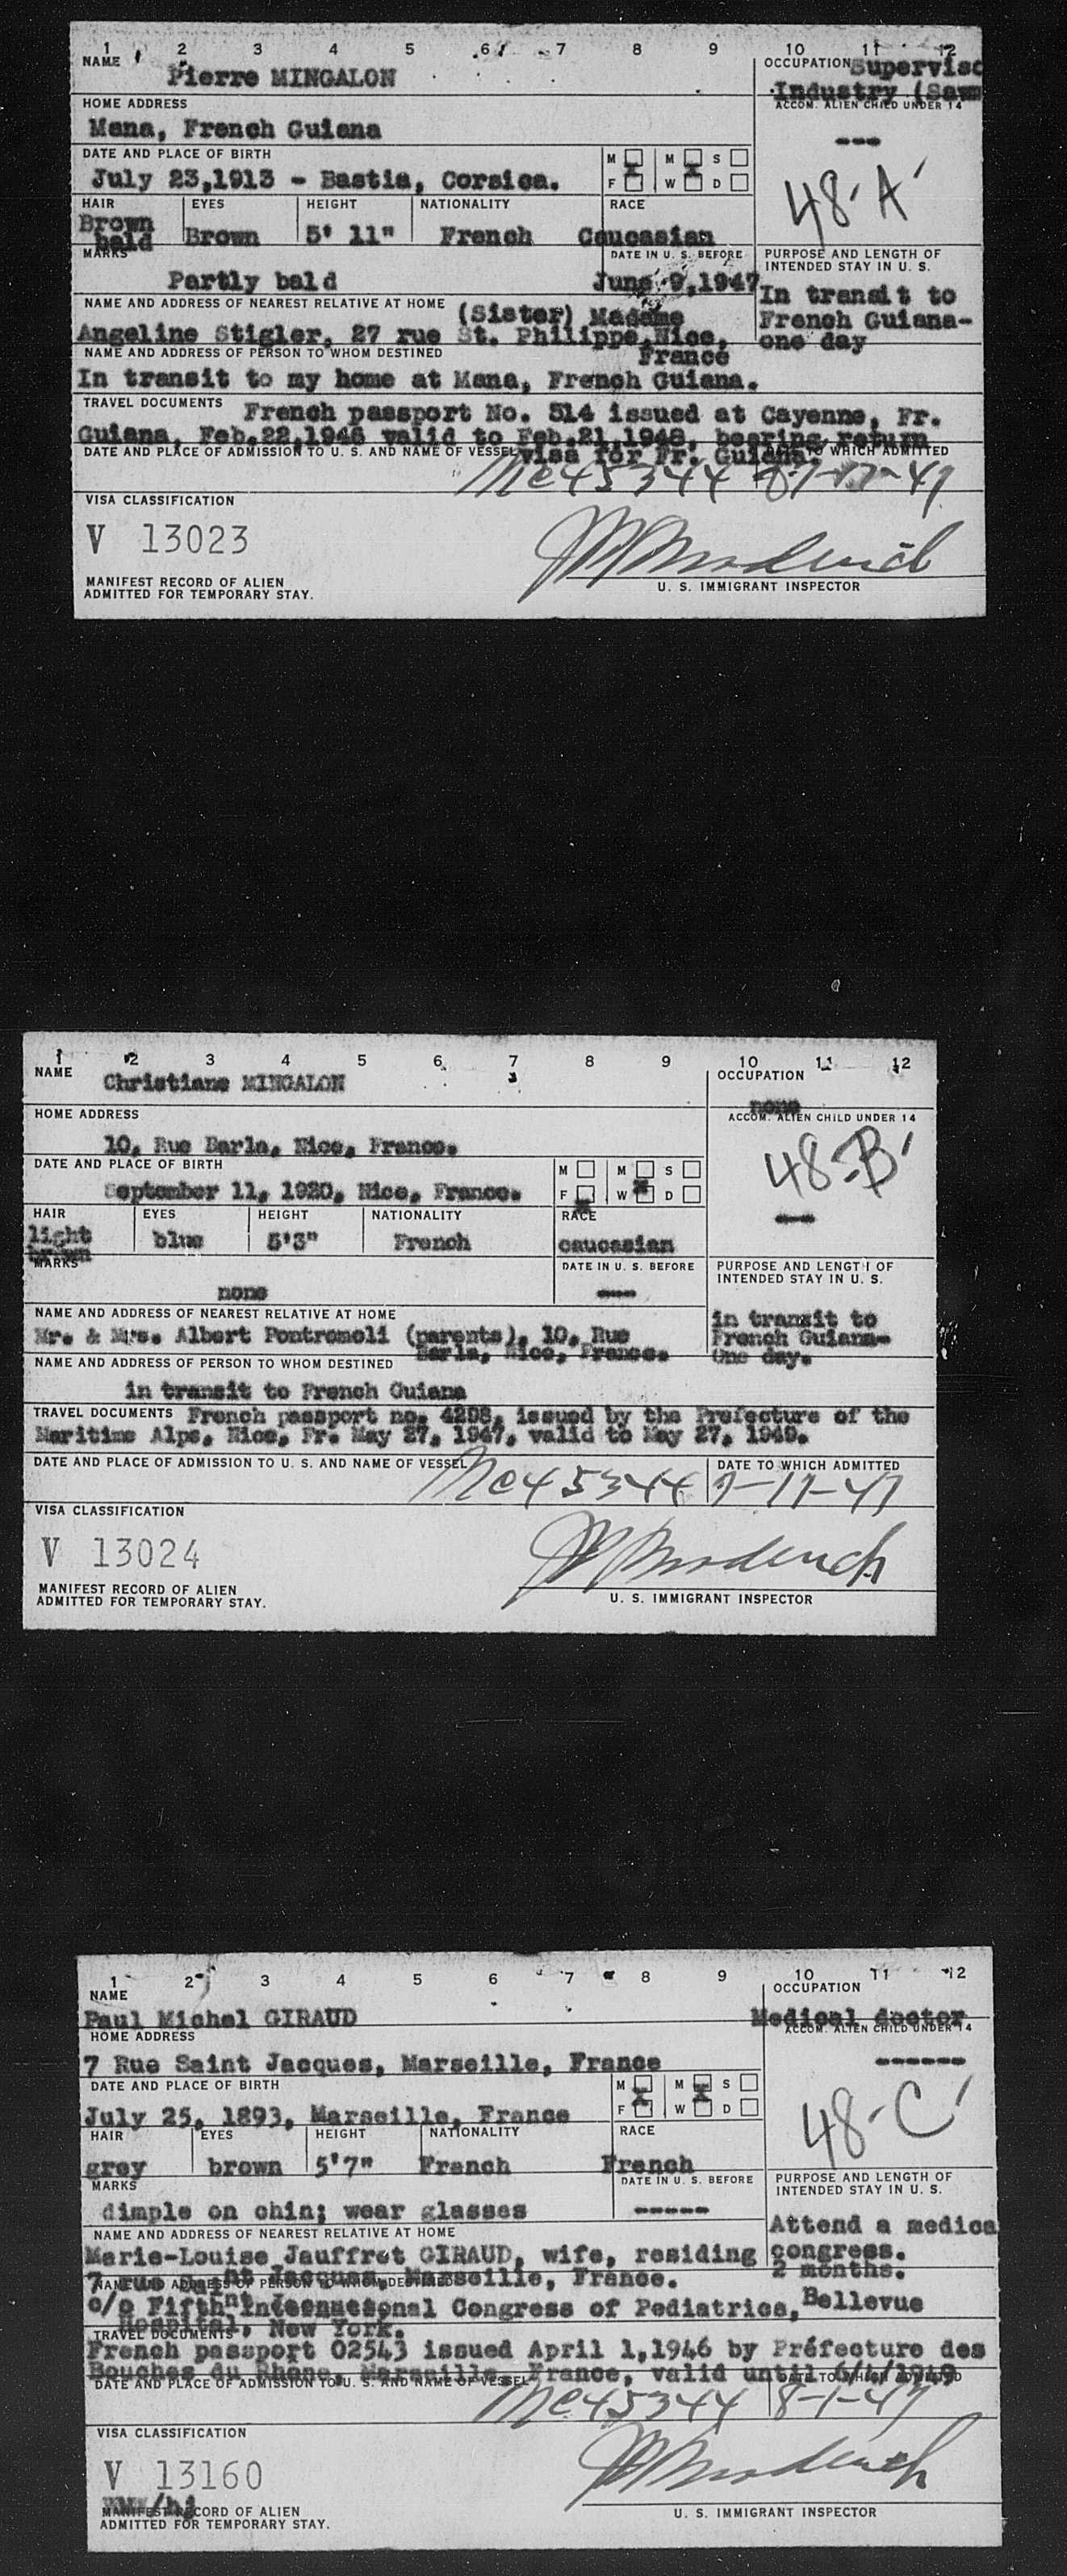 1 2 3 4 5 6 7 8 9 10 11 12
NAME Pierre MINGALON
OCCUPATION Supervisc
Industry (Sawm
HOME ADDRESS
ACCOM. ALIEN CHILD UNDER 14
Mana, French Guiana
---
DATE AND PLACE OF BIRTH
M M S
July 23,1913 - Bastia, Corsica.
F W D
48-A
HAIR EYES HEIGHT NATIONALITY RACE
Brown
bald Brown 5' 11" French Caucasian
MARKS DATE IN U. S. BEFORE
PURPOSE AND LENGTH OF
INTENDED STAY IN U. S.
Partly bald June 9,1947
In transit to
French Guiana-
one day
NAME AND ADDRESS OF NEAREST RELATIVE AT HOME
(Sister) Madame
Angeline Stigler, 27 rue St. Philippe, Nice,
France
NAME AND ADDRESS OF PERSON TO WHOM DESTINED
In transit to my home at Mana, French Guiana.
TRAVEL DOCUMENTS French passport No. 514 issued at Cayenne, Fr.
Guiana, Feb.22,1946 valid to Feb.21,1948, bearing return
visa for Fr. Guiana.
DATE AND PLACE OF ADMISSION TO U. S. AND NAME OF VESSEL TO WHICH ADMITTED
NC45344
VISA CLASSIFICATION
V 13023
MANIFEST RECORD OF ALIEN
ADMITTED FOR TEMPORARY STAY.
U. S. IMMIGRANT INSPECTOR
1 2 3 4 5 6 7 8 9 10 11 12
NAME Christiane MINGALON
OCCUPATION
none
HOME ADDRESS
ACCOM. ALIEN CHILD UNDER 14
10, Rue Barla, Nice, France.
48-B
DATE AND PLACE OF BIRTH
M M S
September 11, 1920, Nice, France.
F W D
---
HAIR EYES HEIGHT NATIONALITY RACE
light
brown blue 5'3" French caucasian
MARKS DATE IN U. S. BEFORE
PURPOSE AND LENGTH OF
INTENDED STAY IN U. S.
none ----
in transit to
French Guiana-
One day.
NAME AND ADDRESS OF NEAREST RELATIVE AT HOME
Mr. & Mrs. Albert Pontremoli (parents), 10, Rue
Barla, Nice, France.
NAME AND ADDRESS OF PERSON TO WHOM DESTINED
in transit to French Guiana
TRAVEL DOCUMENTS French passport no. 4298, issued by the Prefecture of the
Maritime Alps, Nice, Fr. May 27, 1947, valid to May 27, 1949.
DATE AND PLACE OF ADMISSION TO U. S. AND NAME OF VESSEL DATE TO WHICH ADMITTED
NC45344 7-17-47
VISA CLASSIFICATION
V 13024
MANIFEST RECORD OF ALIEN
ADMITTED FOR TEMPORARY STAY.
U. S. IMMIGRANT INSPECTOR
1 2 3 4 5 6 7 8 9 10 11 12
NAME
OCCUPATION
Paul Michel GIRAUD Medical doctor
HOME ADDRESS
ACCOM. ALIEN CHILD UNDER 14
7 Rue Saint Jacques, Marseille, France
------
DATE AND PLACE OF BIRTH
M M S
July 25, 1893, Marseille, France
F W D
48-C
HAIR EYES HEIGHT NATIONALITY RACE
grey brown 5'7" French French
MARKS DATE IN U. S. BEFORE
PURPOSE AND LENGTH OF
INTENDED STAY IN U. S.
dimple on chin; wear glasses -----
Attend a medica
congress.
2 months.
NAME AND ADDRESS OF NEAREST RELATIVE AT HOME
Marie-Louise Jauffret GIRAUD, wife, residing
7 rue Saint Jacques, Marseille, France.
NAME AND ADDRESS OF PERSON TO WHOM DESTINED
c/o Fifth International Congress of Pediatrics, Bellevue
Hospital, New York.
TRAVEL DOCUMENTS
French passport 02543 issued April 1,1946 by Préfecture des
Bouches du Rhone, Marseille, France, valid until
DATE AND PLACE OF ADMISSION TO U. S. AND NAME OF VESSEL DATE TO WHICH ADMITTED
NC45344 8-1-47
VISA CLASSIFICATION
V 13160
MANIFEST RECORD OF ALIEN
ADMITTED FOR TEMPORARY STAY.
U. S. IMMIGRANT INSPECTOR